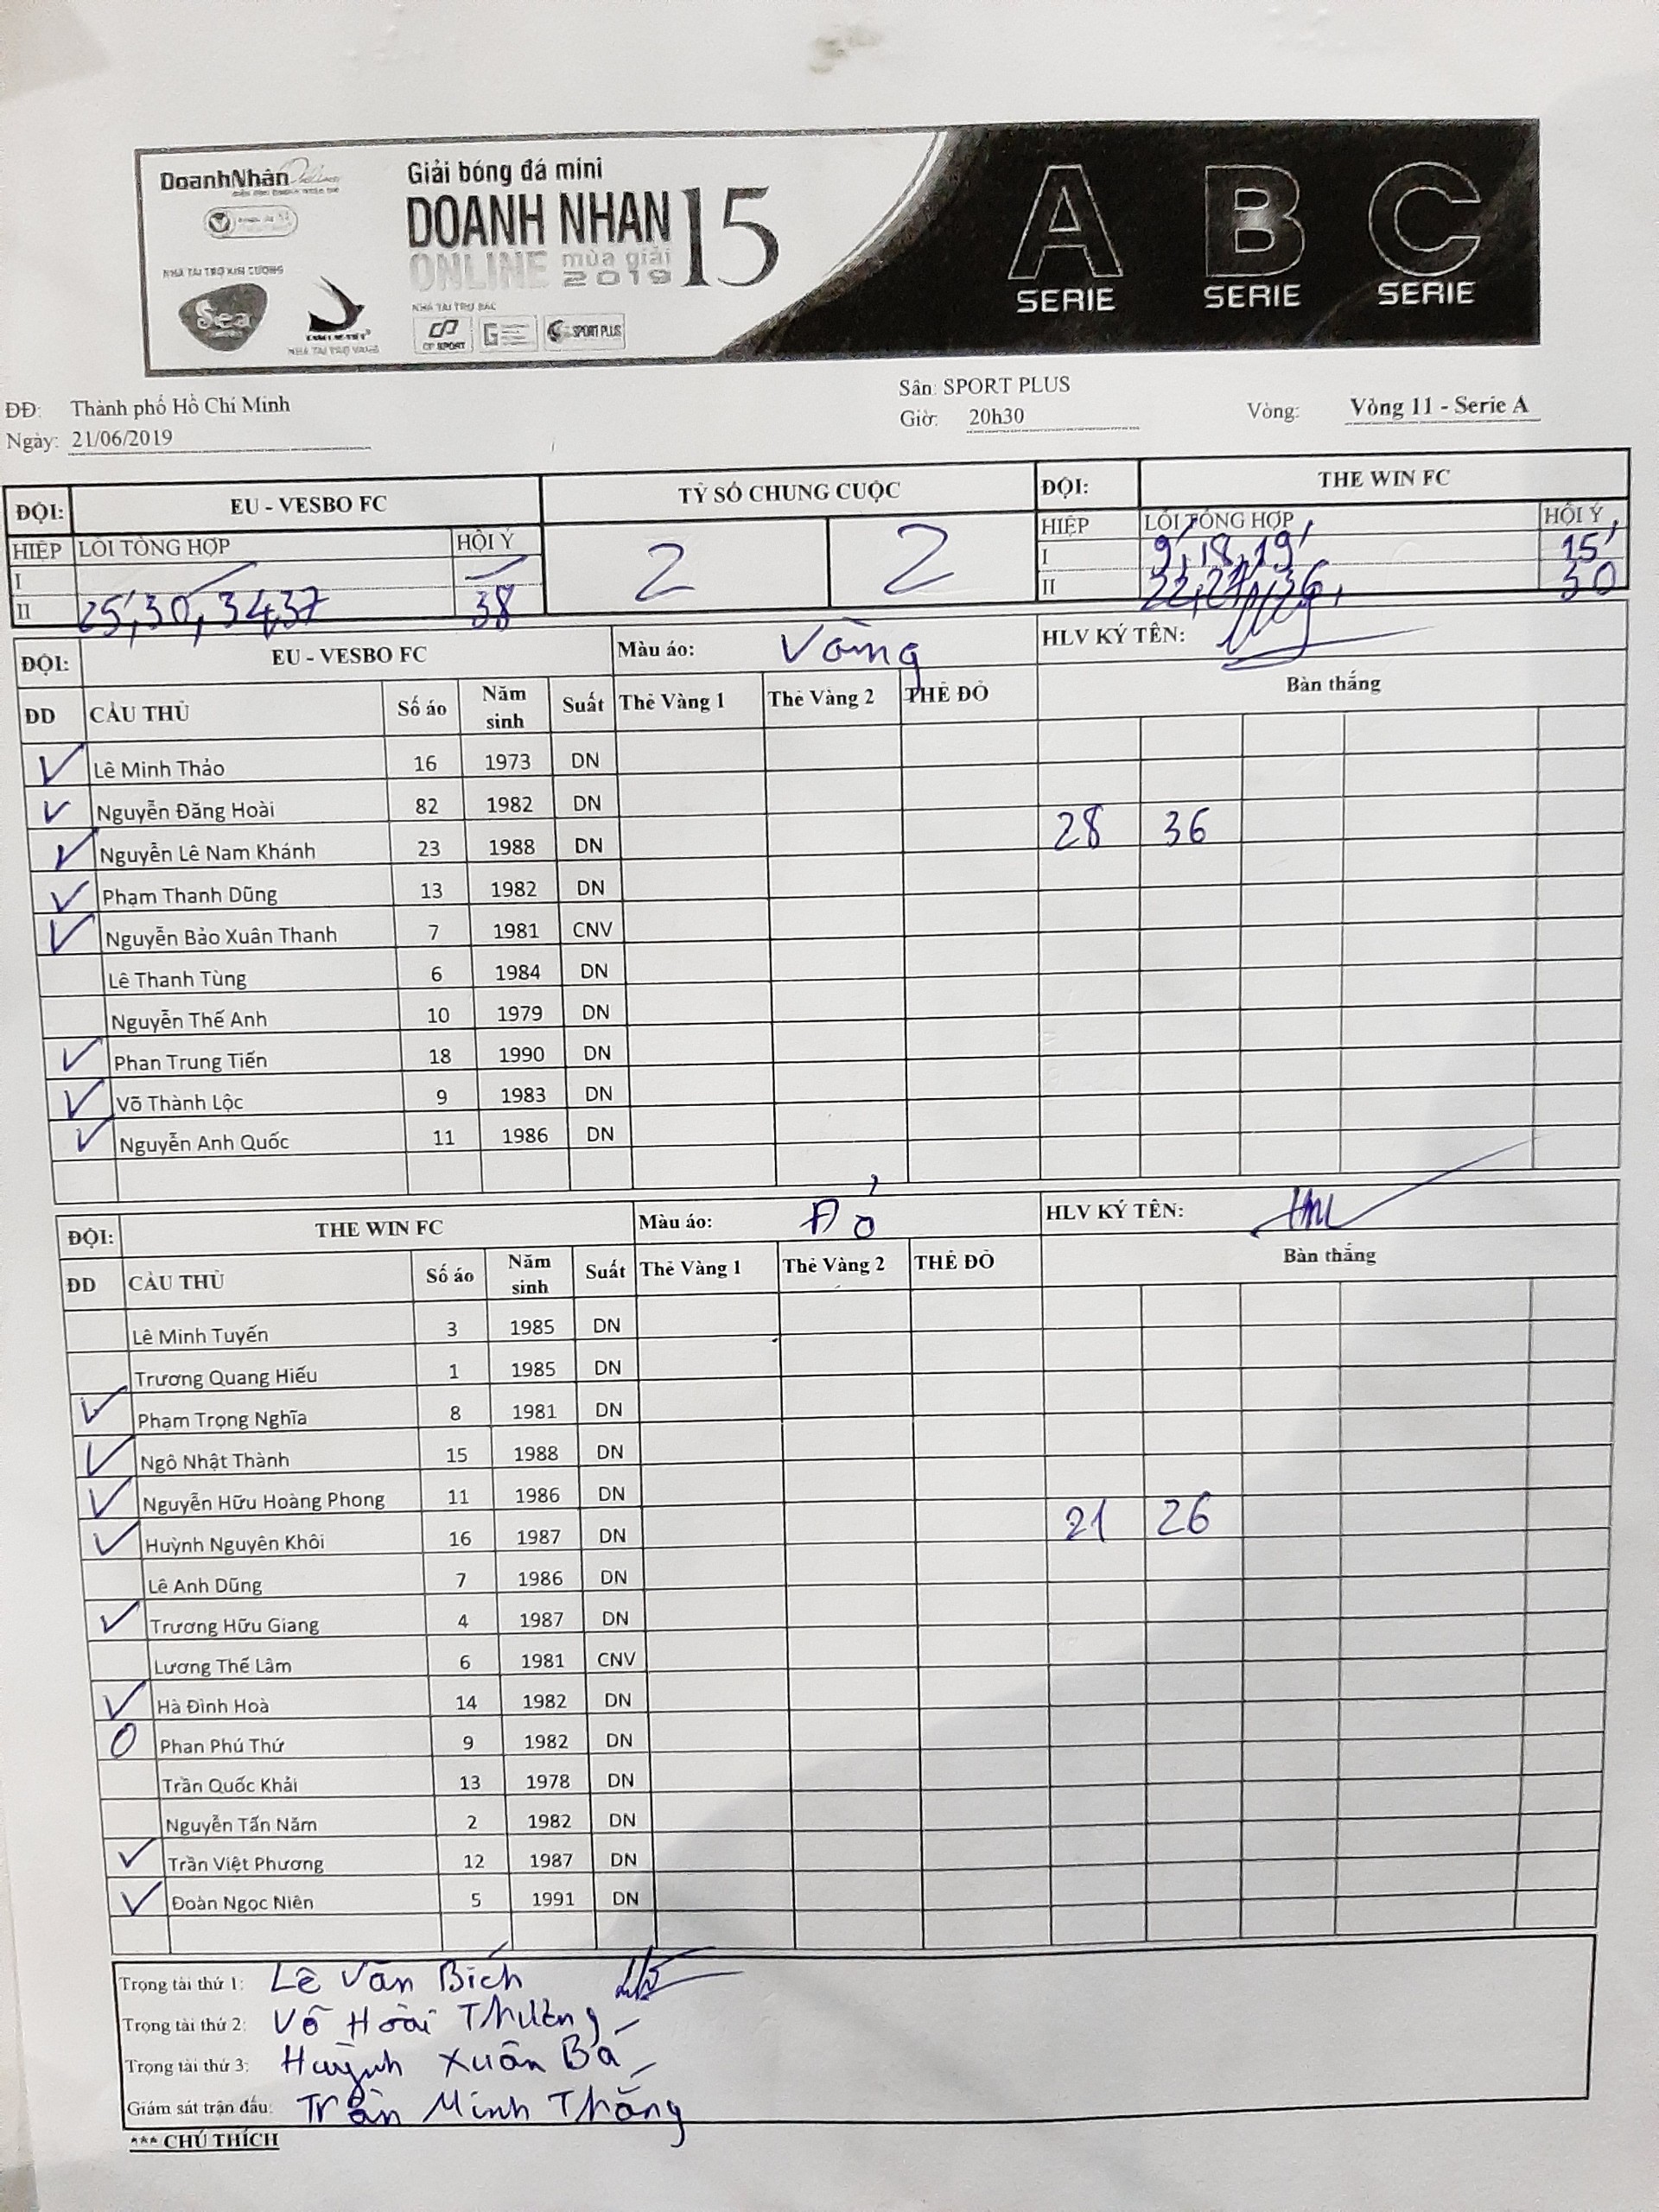 DoanhNhân
Giải bóng đá mini
DOANH NHAN 15
ONLINE mùa giải 2019
NHÀ TÀI TRỢ KIM CƯƠNG
Sea
NHÀ TÀI TRỢ VÀNG
NHÀ TÀI TRỢ BẠC
CP SPORT
SPORT PLUS
A SERIE B SERIE C SERIE
ĐĐ: Thành phố Hồ Chí Minh Sân: SPORT PLUS
Ngày: 21/06/2019 Giờ: 20h30 Vòng: Vòng 11 - Serie A
ĐỘI: EU - VESBO FC TỶ SỐ CHUNG CUỘC ĐỘI: THE WIN FC
HIỆP LỖI TỔNG HỢP HỘI Ý 2 2 HIỆP LỖI TỔNG HỢP HỘI Ý
I I 9', 18, 19' 15'
II 25', 30, 34, 37 38 II 22, 27, 36, 30
ĐỘI: EU - VESBO FC Màu áo: Vàng HLV KÝ TÊN:
ĐD CẦU THỦ Số áo Năm sinh Suất Thẻ Vàng 1 Thẻ Vàng 2 THẺ ĐỎ Bàn thắng
✓ Lê Minh Thảo 16 1973 DN
✓ Nguyễn Đăng Hoài 82 1982 DN
✓ Nguyễn Lê Nam Khánh 23 1988 DN 28 36
✓ Phạm Thanh Dũng 13 1982 DN
✓ Nguyễn Bảo Xuân Thanh 7 1981 CNV
Lê Thanh Tùng 6 1984 DN
Nguyễn Thế Anh 10 1979 DN
✓ Phan Trung Tiến 18 1990 DN
✓ Võ Thành Lộc 9 1983 DN
✓ Nguyễn Anh Quốc 11 1986 DN
ĐỘI: THE WIN FC Màu áo: Đỏ HLV KÝ TÊN:
ĐD CẦU THỦ Số áo Năm sinh Suất Thẻ Vàng 1 Thẻ Vàng 2 THẺ ĐỎ Bàn thắng
Lê Minh Tuyến 3 1985 DN
Trương Quang Hiếu 1 1985 DN
✓ Phạm Trọng Nghĩa 8 1981 DN
✓ Ngô Nhật Thành 15 1988 DN
✓ Nguyễn Hữu Hoàng Phong 11 1986 DN
✓ Huỳnh Nguyên Khôi 16 1987 DN 21 26
Lê Anh Dũng 7 1986 DN
✓ Trương Hữu Giang 4 1987 DN
Lương Thế Lâm 6 1981 CNV
✓ Hà Đình Hoà 14 1982 DN
O Phan Phú Thứ 9 1982 DN
Trần Quốc Khải 13 1978 DN
Nguyễn Tấn Năm 2 1982 DN
✓ Trần Việt Phương 12 1987 DN
✓ Đoàn Ngọc Niên 5 1991 DN
Trọng tài thứ 1: Lê Văn Bích
Trọng tài thứ 2: Võ Hoài Thương
Trọng tài thứ 3: Huỳnh Xuân Bá
Giám sát trận đấu: Trần Minh Thắng
*** CHÚ THÍCH